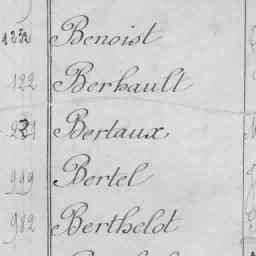 1232 Benoist
122 Berhault
929 Bertaux
999 Bertel
982 Berthelot